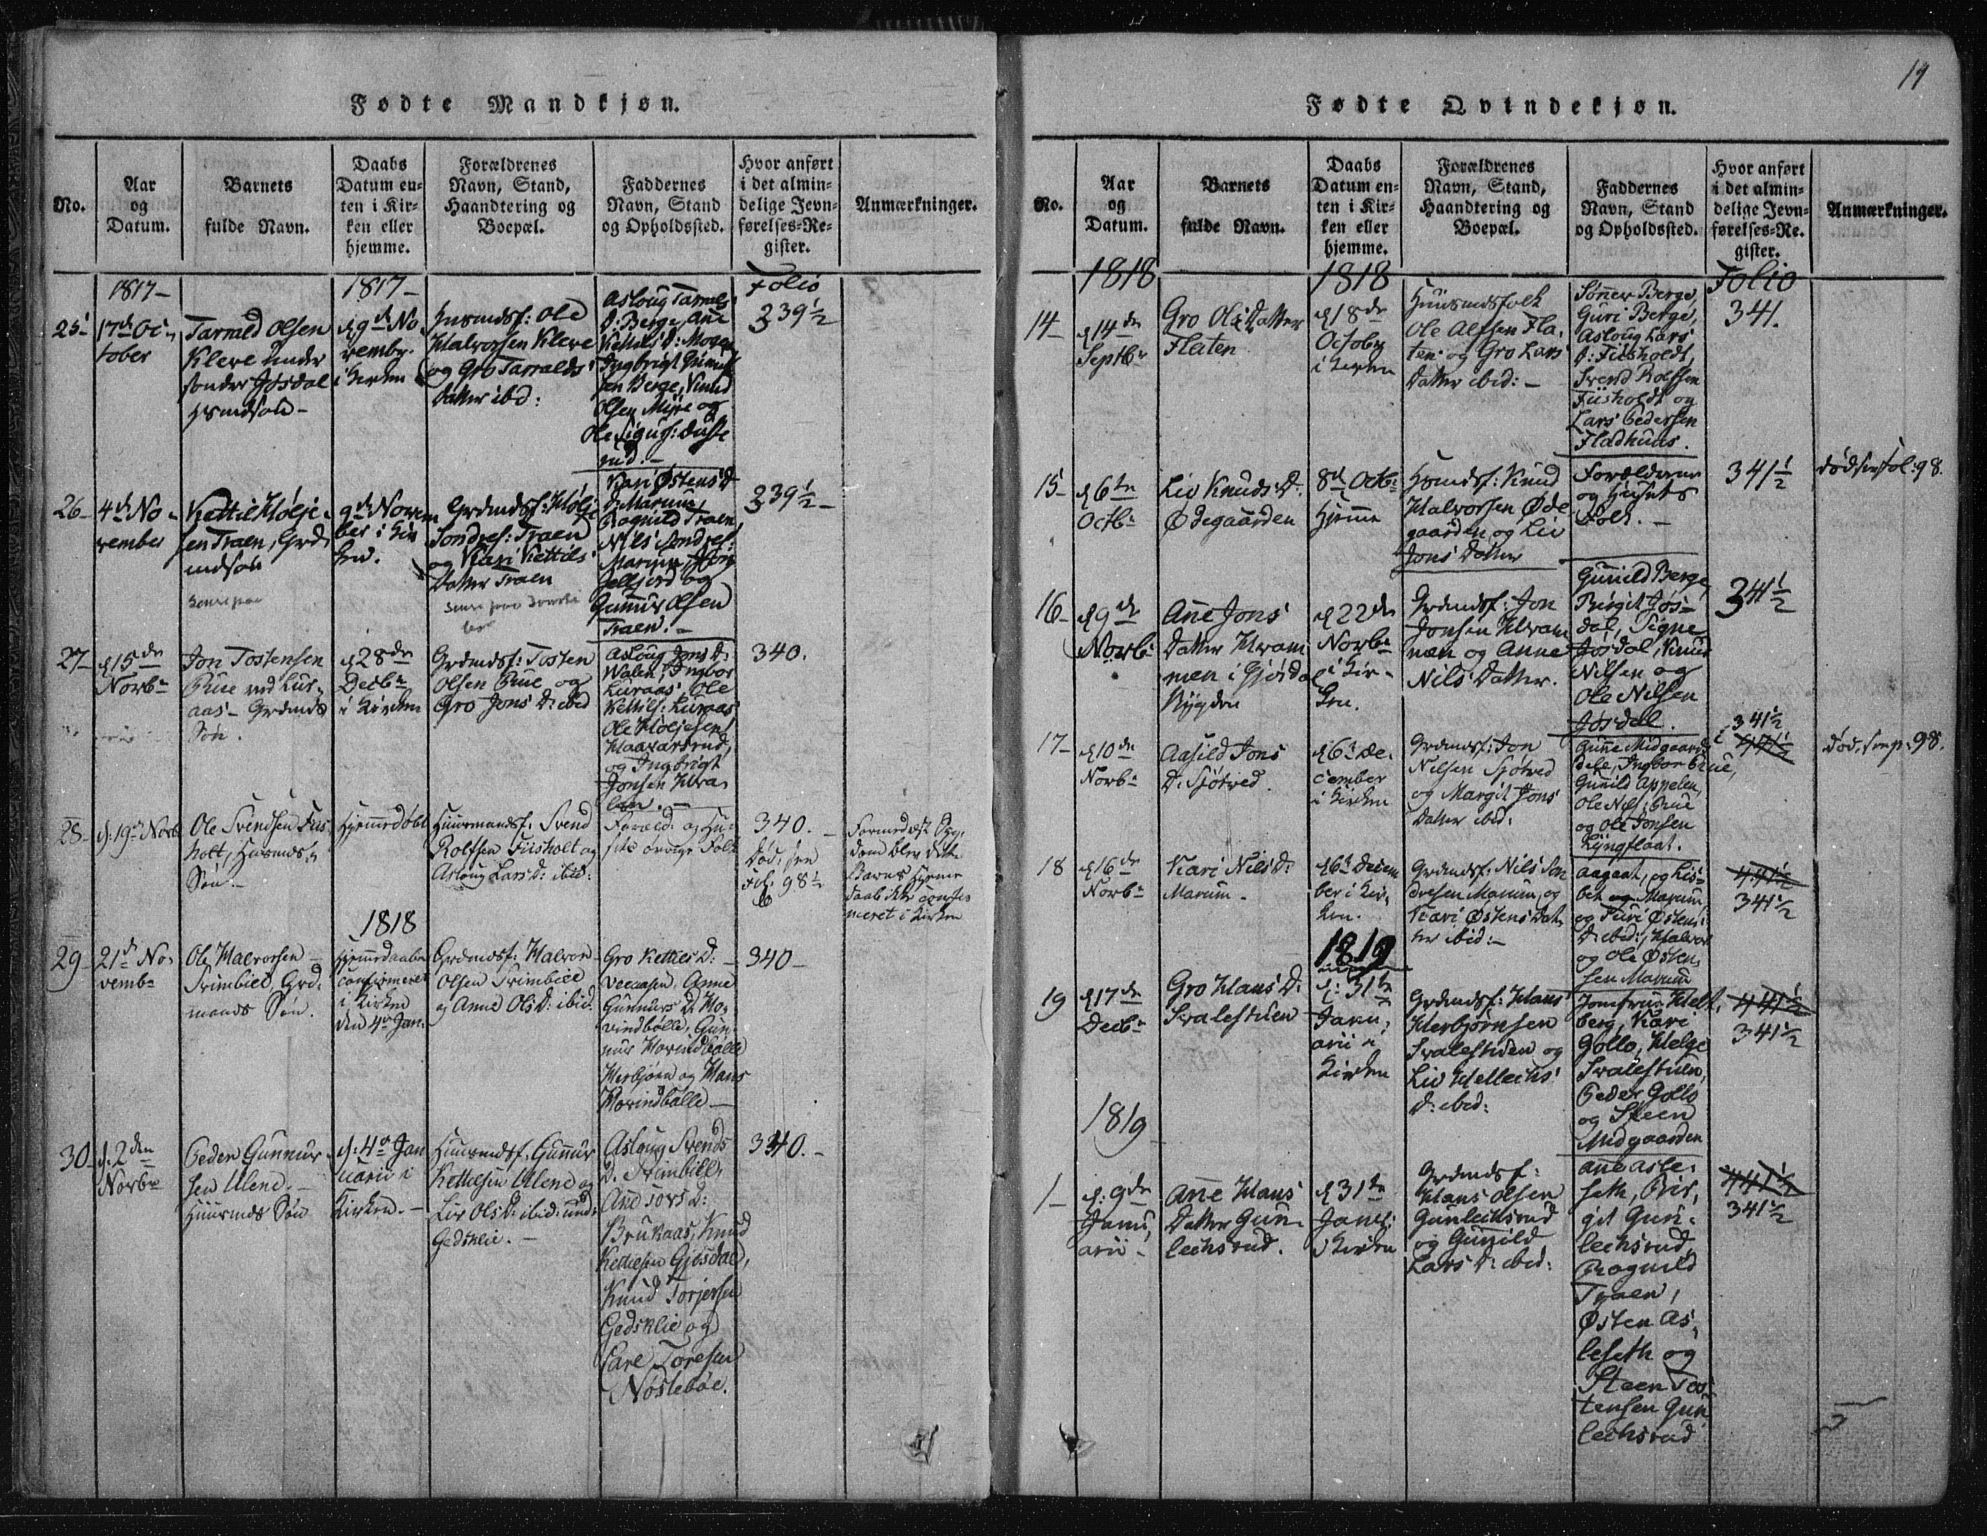 19
Fødte Mandkjøn.
No.
Aar
og
Datum.
Barnets
fulde Navn.
Daabs
Datum en-
ten i Kir-
ken eller
hjemme.
Forældrenes
Navn, Stand,
Haandtering og
Boepæl.
Faddernes
Navn, Stand
og Opholdssted.
Hvor anført
i det almin-
delige Jevn-
førelses-Re-
gister.
Anmærkninger.
1817-
1817-
Folio
25
17d Oc-
tober
Tarald Olsen
Kleve under
sønder Jøsdal
d 9de No-
vembr.
i Kirken
Husmdsf: Ole
Halvorsen Kleve
og Gro Taralds
Datter ibd:
Asloug Taralds
D: Berge, Ane
Kettils D: Mogen
Ingbrigt
sen Berge, Knud
Olsen Mire og
Ole
rud.-
239½
26-
4d No-
vember
Kettil Høljesen
Traen, Grd
mdsøn
9d Novem
ber i Kir
ken.
Grdmdsf: Hølje
Sondres: Traen
og Kari Kettils
Datter Traen
Kari Østens D
Marum,
Ragnild Traen,
Nils Sondres:
Marum, Jon
og
Gunnur Olsen
Traen.-
239½-
27-
d 15de
Novbr
Jon Tostensen
Rue ved Lur-
aas- Grdmds
Søn.
d 28de
Decbr
i Kirken
Grdmdsf: Tosten
Olsen Rue og
Gro Jons D: ibid
Asloug Jons D:
Ingbor
Luraas, Ole
Kettils: Luraas
Ole Høljesen
Haavarsrud,
og Ingbrigt
Jonsen Kva-
len.-
340.
28-
d. 19de Novb
Ole Svendsen Fiis-
holt, Husmds-
Søn.-
Hjemmedøbt
Huusmandsf: Svend
Rolfsen Fiisholt og
Asloug Lars D: ibid:
Foræld: og Hu-
sets øvrige Folk
340.-
Død, see
Fol: 98½
Formedelst Syg-
dom blev dette
Barns Hjemme
daab ikke confir-
meret i Kirken
1818
29-
21d No-
vembr
Ole Halvorsen
Trimbiel, Grd-
mands Søn.
Hjemmedaaben
confirmeret
i Kirken
den 4de Jan:
Grdmdsf: Halvor
Olsen Trimbiel
og Anne Ols D: ibid.
Gro Kettils D:
Anne
Gunnurs D: Ho-
vindbølle, Gun-
nur Hovindbølle
Herbjørn og Hans
Hovindbølle-
340-
30-
d. 2den
Novbr
Peder Gunnur-
sen Ulend.-
Huusmds Søn
d. 4de Jan
uarii i
Kirken.-
Huusmdsf: Gunnur
Kettilsen Ulend og
Liv Ols D: ibid: und:
Gedsklie.-
Asloug Svends
D: Trimbill,
Ane Jons D:
Bruraas, Knud
Kettilsen Gjøsdal,
Knud Torjersen
Gedsklie og
Lare Toresen
Nøslebøe.
340.-
Fødte Qvindekjøn.
No.
Aar
og
Datum.
Barnets
fulde Navn.
Daabs
Datum en-
ten i Kir-
ken eller
hjemme.
Forældrenes
Navn, Stand,
Haandtering og
Boepæl.
Faddernes
Navn, Stand
og Opholdssted.
Hvor anført
i det almin-
delige Jevn-
førelses-Re-
gister.
Anmærkninger.
1818
1818
Folio
14-
d 14de
Septbr
Gro Ols Datter
Flaten
d 18de
Octobr
i Kirken
Huusmdsfolk
Ole Alfsen Fla-
ten- og Gro Lars
Datter ibid:-
Sønnev Berge,
Guri Berge,
Asloug Lars
D: Fiisholdt,
Svend Rolfsen
Fiisholdt og
Lars Pedersen
Fladhuus.
341.
15-
d 6te
Octbr
Liv Knuds D:
Ødegaarden
8de Octb:
Hjemme
Husmdsf: Knud
Halvorsen Øde
gaarden og Liv
Jons Datter
Forældrene
og Husets
Folk.-
341½
død see Fol: 98.
16-
d 9de
Novbr
Ane Jons
Datter Kvam
men i Gjøsdal
Bygden
d 22de
Novbr
i Kir-
ken.
Grdmdsf: Jon
Jonsen Kvam
men og Anne
Nils Datter.
Gunild Berge,
Birgit Jøs-
dal, Signe
Jøsdal, Knud
Nilsen og
Ole Nilsen
Jøsdal.
341½
17-
d 10de
Novbr
Aasild Jons
D: Sjøtved
d 6te De-
cember
i Kirken
Grdmdsf: Jon
Nilsen Sjøtved
og Margit Jons
Datter ibid:
Gunne Midgaard
Ingbor Rue,
Gunild Appelen,
Ole Nils: Rue
og Ole Jonsen
Lyngflaat.
341½
441½
død, see p. 98.
18
d 16de
Novbr
Kari Nils D:
Marum.
d 6te Decem
ber i Kir-
ken.
Grdmdsf: Nils Son
dresen Marum og
Kari Østens Dat
ter ibid:-
Aagaat, og Lis-
bet og Marum,
og Turi Østens
D: ibid:, Halvor
og Ole Østen-
sen Marum
441½
341½
1819
19
d 17de
Decbr
Gro Hans D:
Svalestuen
d: 31te
Janu-
arii i
Kirken
Grdmdsf: Hans
Herbjørnsen
Svalestuen og
Liv Hellechs
D: ibid:
Jomfrue Helt-
berg, Kari
Gollo, Helge
Svalestuen,
Peder Gollo
og Steen
Midgaarden
441½
341½
1819
1-
d: 9de
Janu-
arii-
Ane Hans
Datter Gun-
lechsrud.
d 31te
Janr:
i Kirken
Grdmdsf:
Hans Olsen
Gunlechsrud
og Gunild
Lars D: ibid:
Ane Asle-
seth, Bir-
git Gun-
lechsrud,
Ragnild
Traen,
Østen As-
leseth og
Steen Tos-
tensen Gun
lechsrud
441½
341½